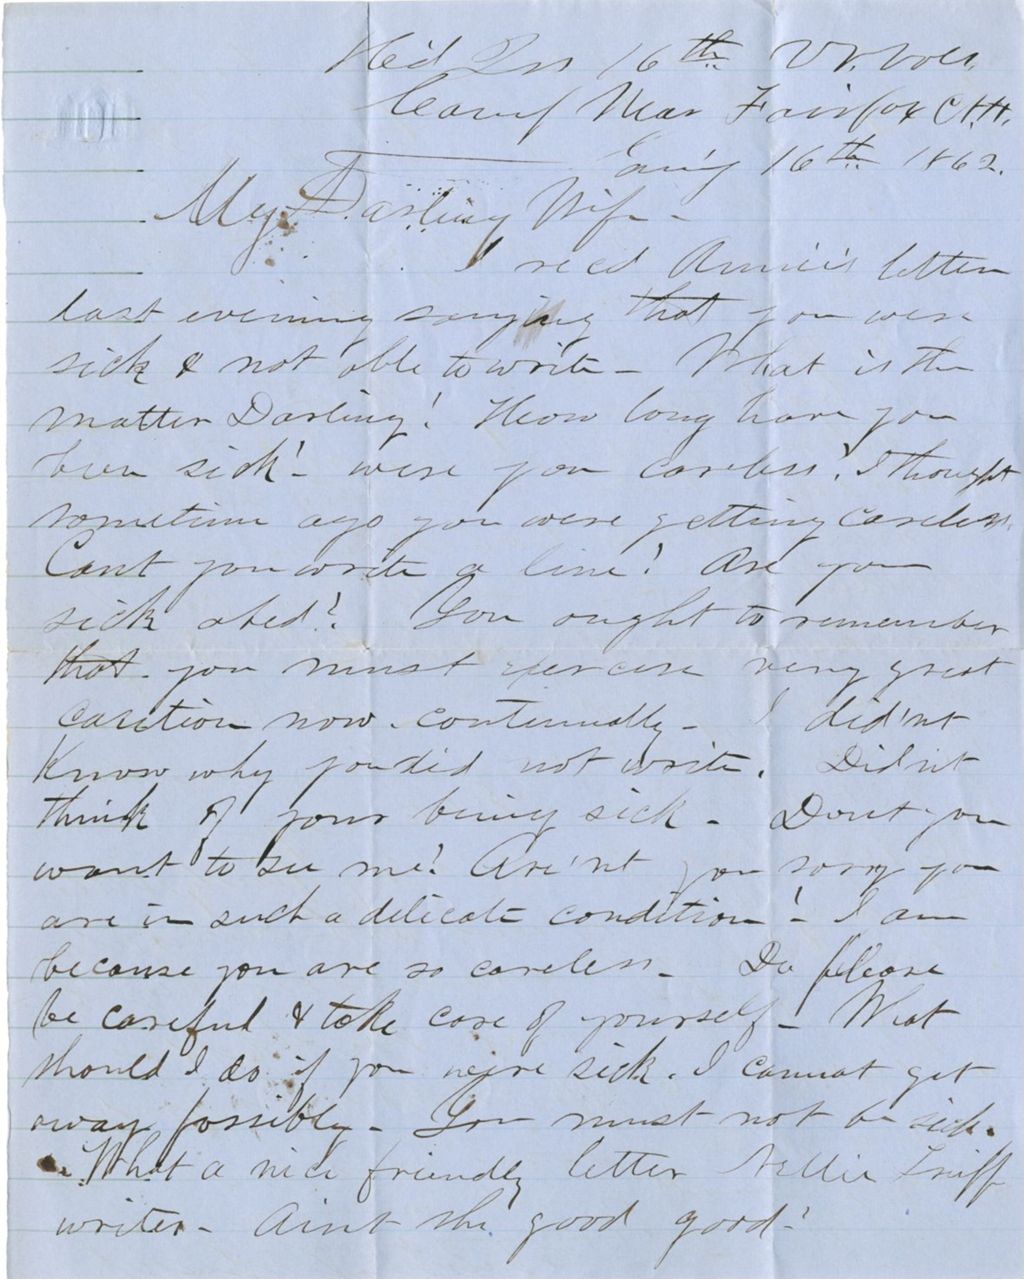 Hd Qrs 16th Vt. Vols.
Camp Near Fairfax C.H.
Jan'y 16th 1862.
My Darling Wife -
I recd Annie's letter
last evening saying that you were
sick & not able to write - What is the
matter Darling! How long have you
been sick! - were you careless! I thought
sometime ago you were getting careless.
Cant you write a line! Are you
sick abed! You ought to remember
that you must exercise very great
caution now continually - I did'nt
Know why you did not write. Did'nt
think of your being sick - Dont you
want to see me! Are'nt you sorry you
are in such a delicate condition! - I am
because you are so careless - Do please
be careful & take care of yourself - What
should I do if you were sick. I cannot get
away possibly - You must not be sick.
What a nice friendly letter Nellie
writes - Aint she good good!